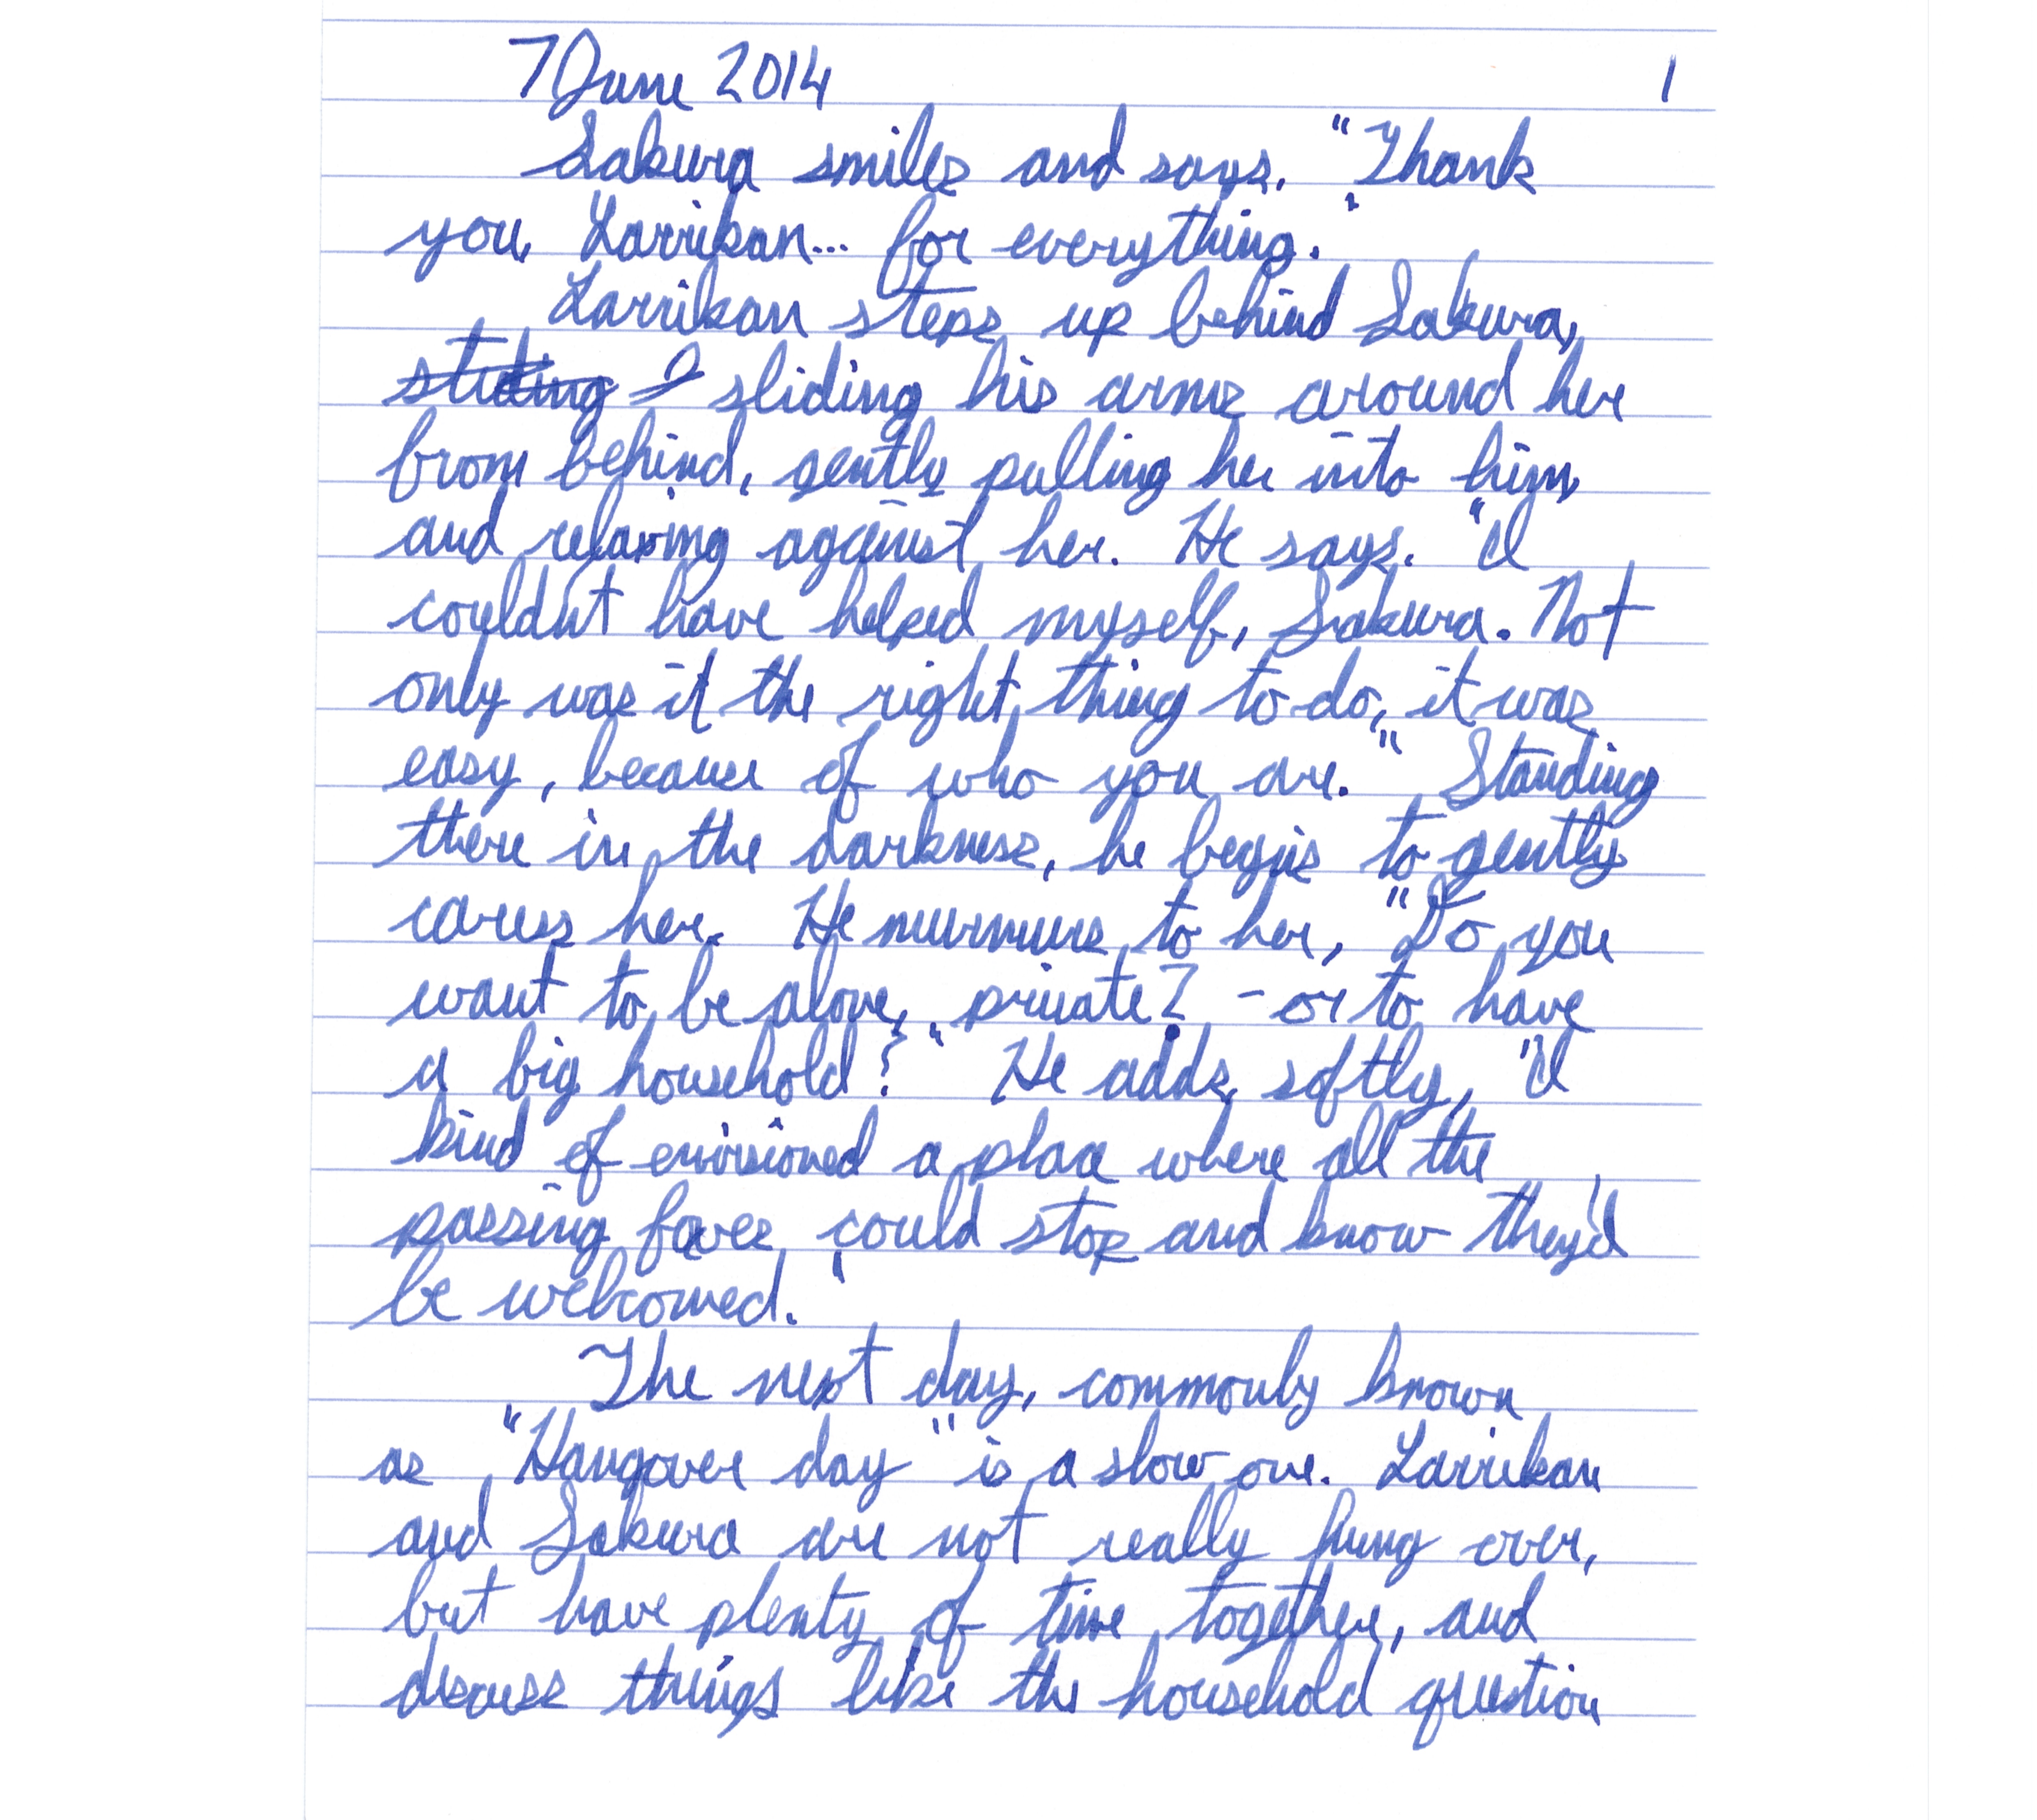 7 June 2014 1
Sakura smiles and says, "Thank
you, Larrikan... for everything."
Larrikan steps up behind Sakura,
sliding his arms around her
from behind, gently pulling her into him,
and relaxing against her. He says, "I
couldn't have helped myself, Sakura. Not
only was it the right thing to do, it was
easy, because of who you are." Standing
there in the darkness, he begins to gently
caress her. He murmurs to her, "Do you
want to be alone, private? - or to have
a big household?" He adds softly, "I
kind of envisioned a place where all the
passing faces could stop and know they'd
be welcomed."
The next day, commonly known
as "Hangover day" is a slow one. Larrikan
and Sakura are not really hung over,
but have plenty of time together, and
discuss things like the household question